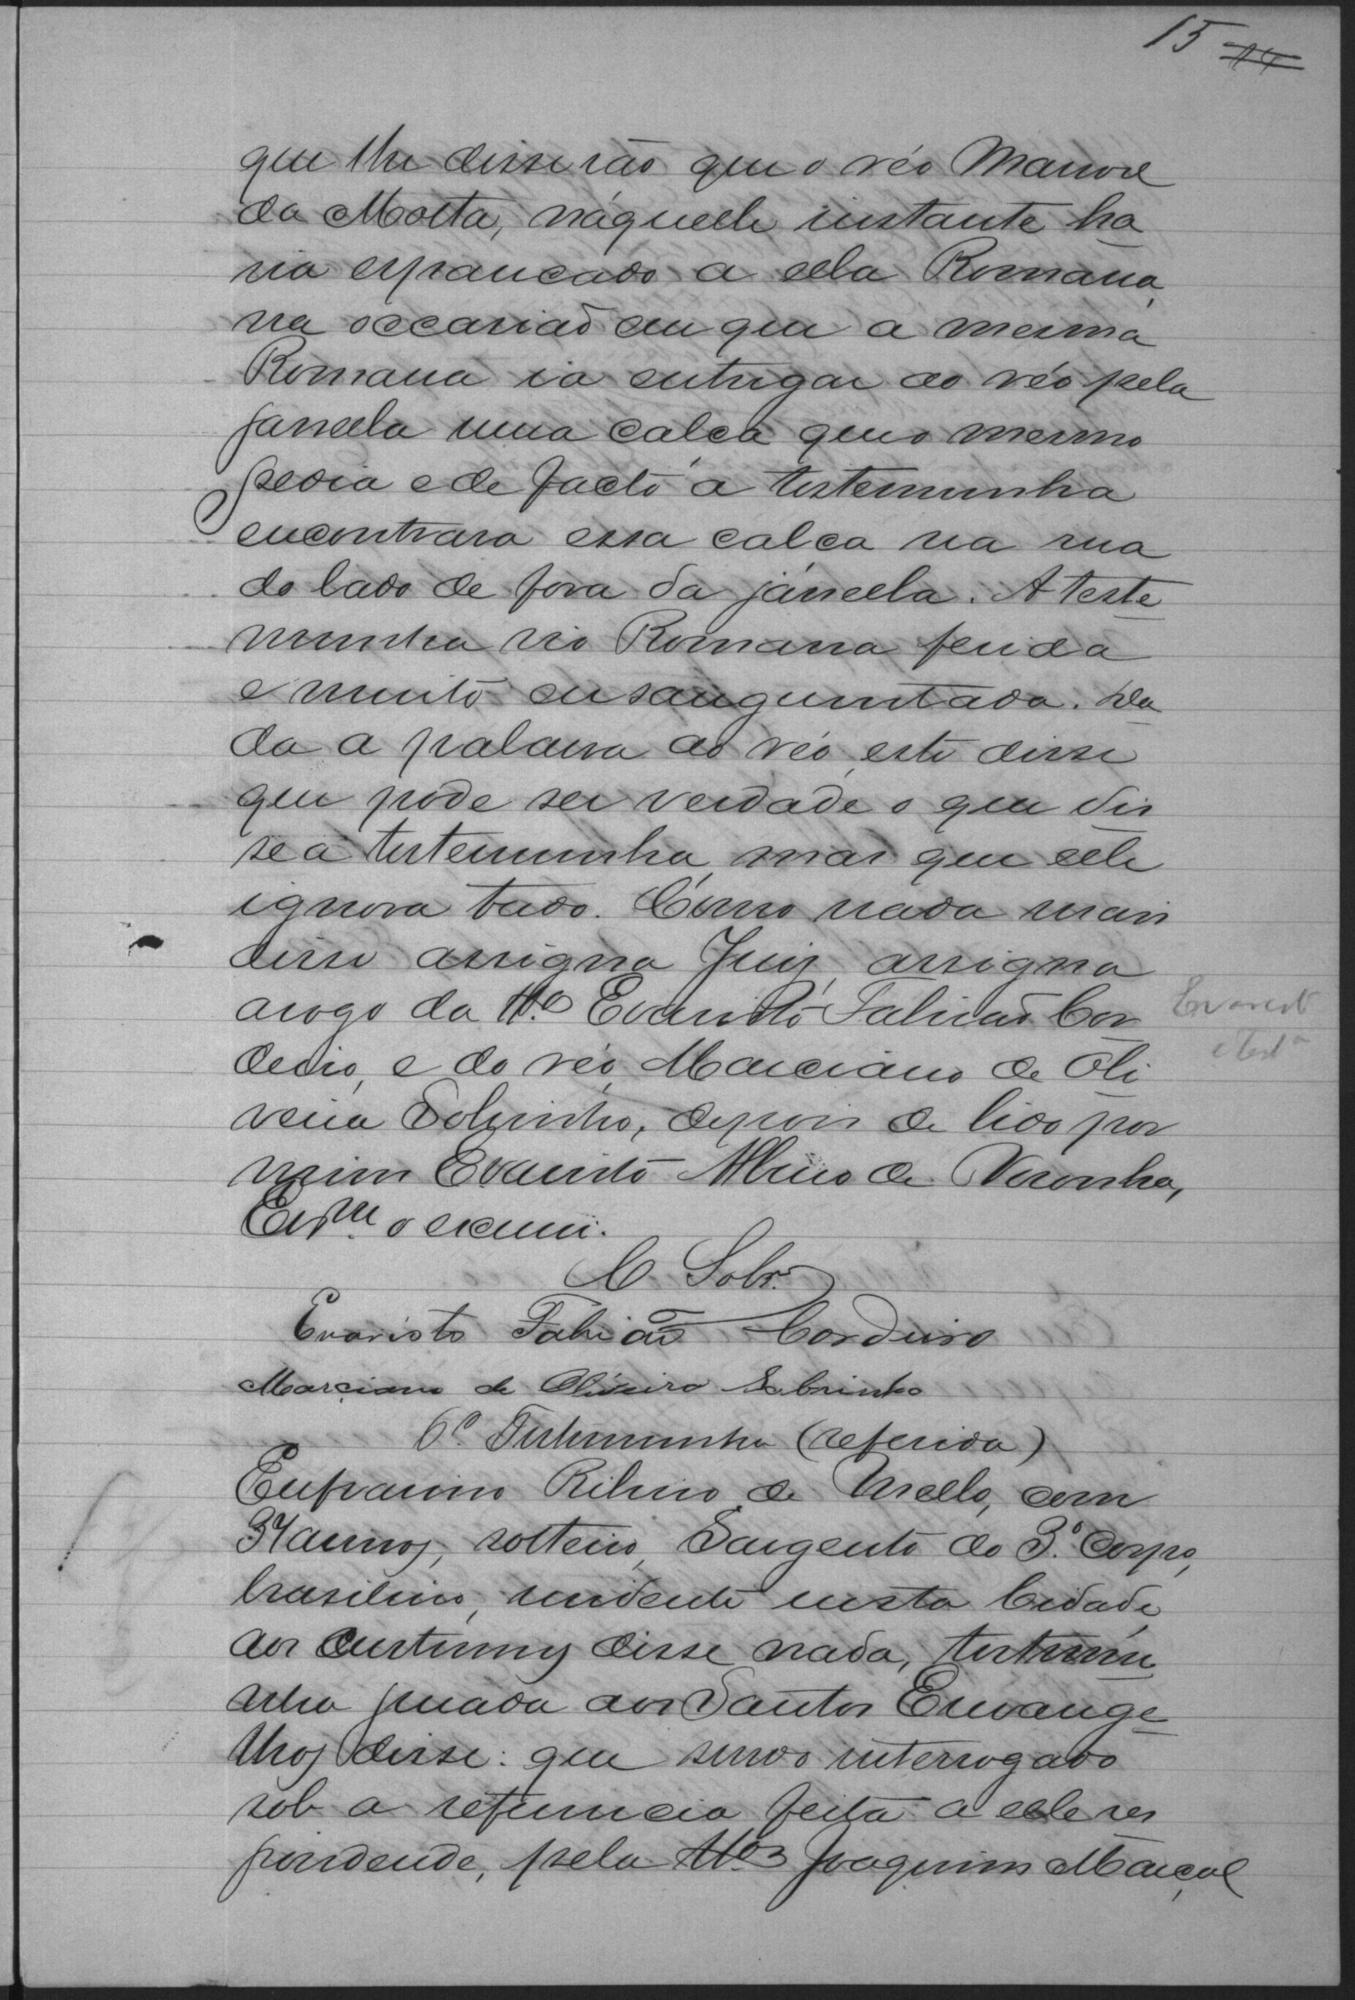 15 14
que lhe disserão que o réo Manoel
da Motta, náquelle instante ha
via espancado a ella Romana,
na occasiaõ em que a mesma
Romana ia entregar ao réo pela
janella uma calça que o mesmo
pedia e de facto a testemunha
encontrara essa calca na rua
do lado de fora da janella. A teste
munha vio Romana ferida
e muito ensanguentada. Da
da a palavra ao réo, este disse
que póde ser verdade o que dis
se a testemunha, mas que elle
ignora tudo. Como nada mais
disse assigna Juiz, assigna
arogo da tt.ª Evaristo Fabiaõ Cor
deiro, e do réo, Marciano de Oli
veira Sobrinho, depois de lido por
mim Evaristo Albino de Noronha,
Escr.m o escrevi.
C Sobr.º
Evaristo Fabião Cordeiro
Marciano de Oliveira Sobrinho
6ª Testemunha (referida)
Eufrasino Ribeiro de Mello, com
34 annos, solteiro, Sargento do 3.º Corpo,
brasileiro, residente nesta Cidade,
aos custumes disse nada, testemu
nha jurada aos Santos Envange
lhos disse: que sendo interrogado
sob a referencia feita a elle res
pondende, pela tt.ª Joaquim Marçal
Evaristo
e test.ª